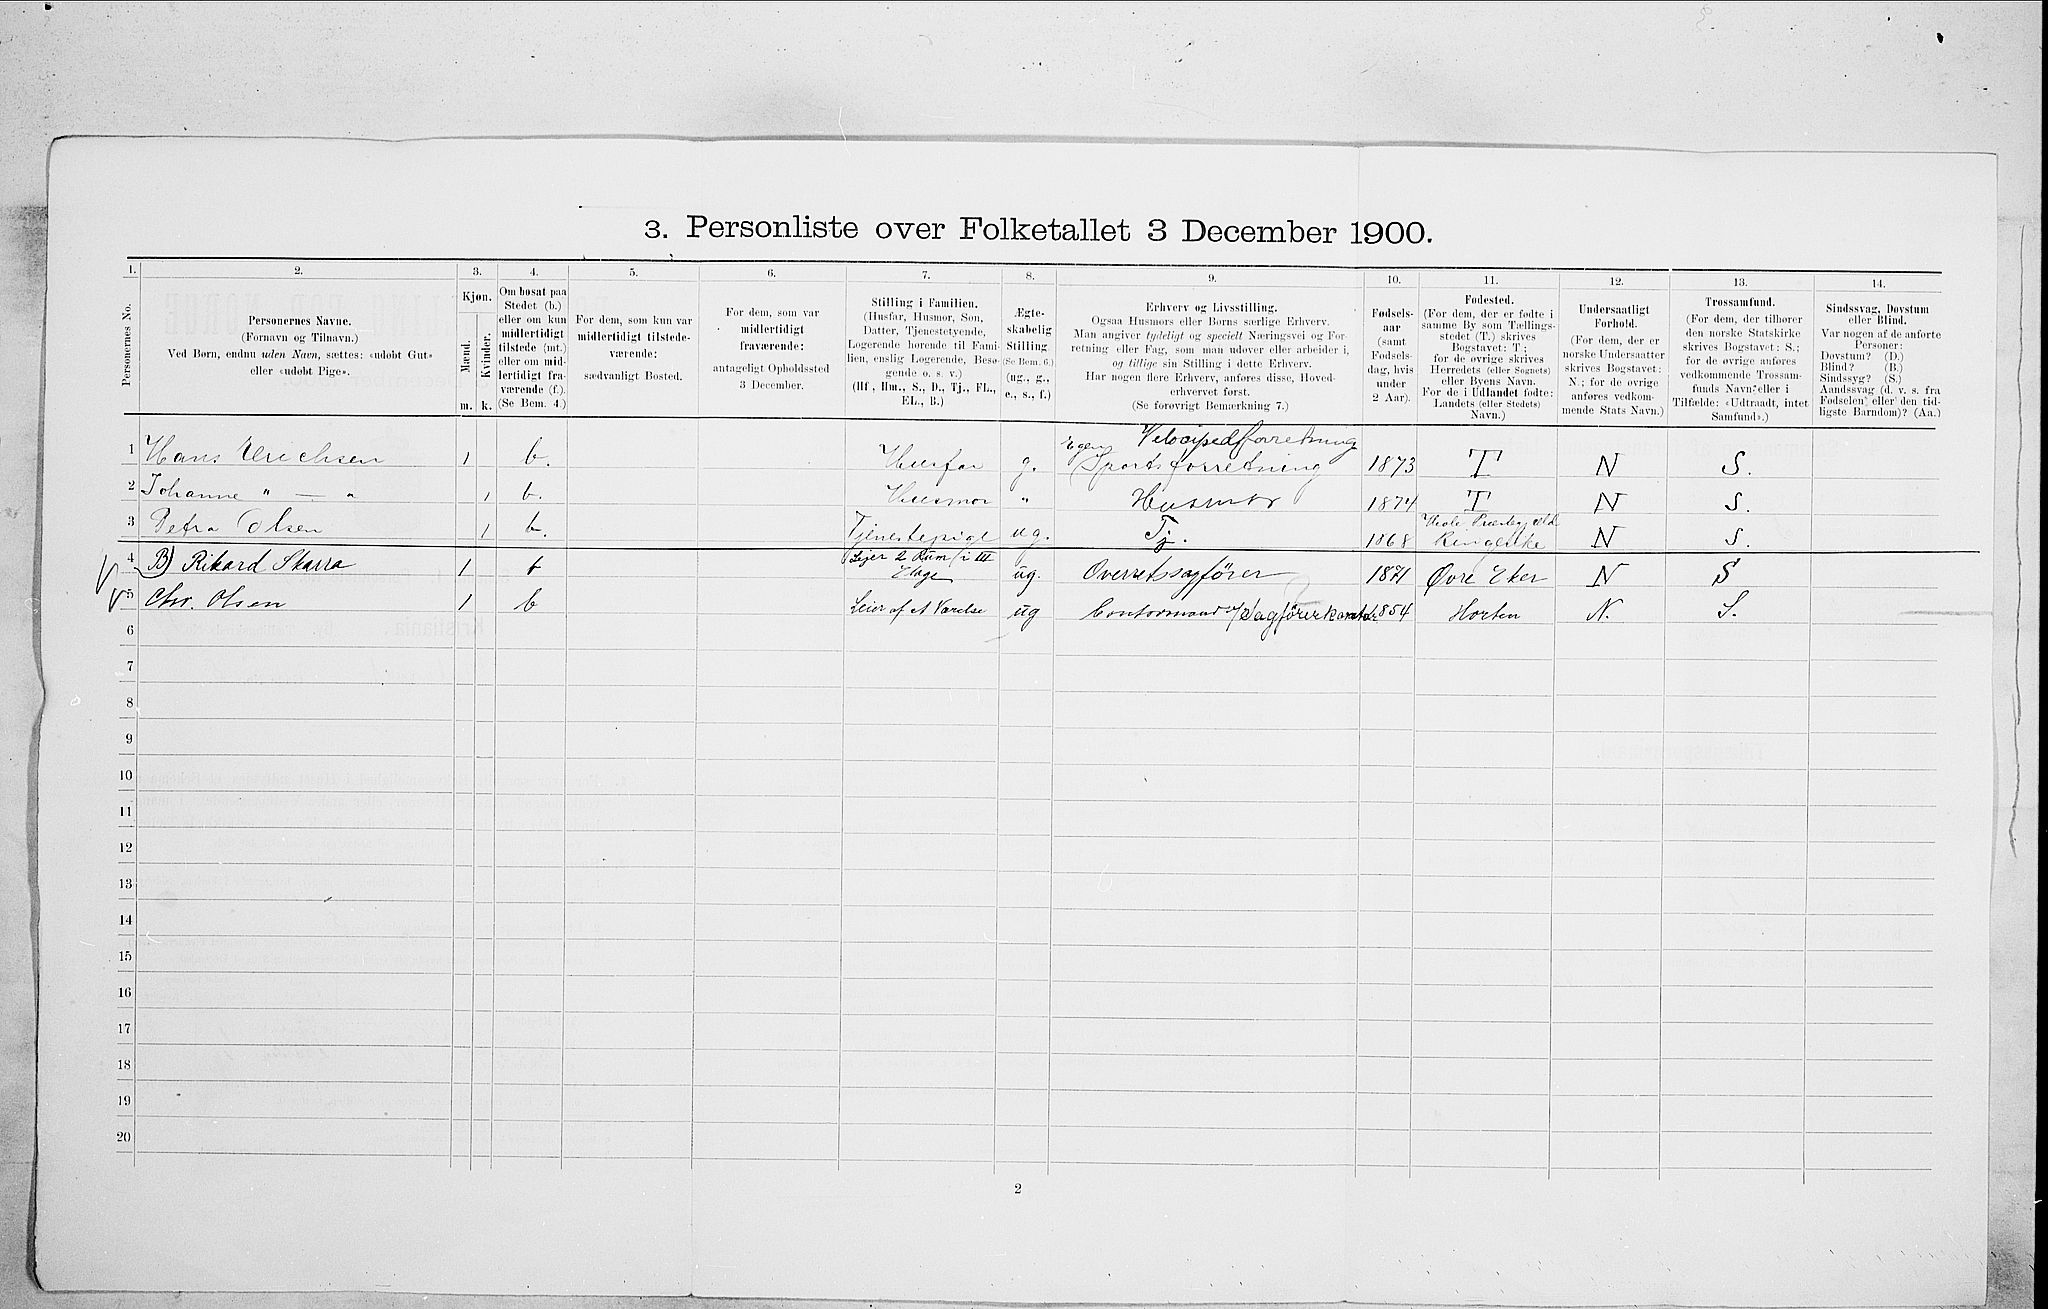 3. Personliste over Folketallet 3 December 1900.
1. 2. 3. 4. 5. 6. 7. 8. 9. 10. 11. 12. 13. 14.
Personernes No.
Personernes Navne.
(Fornavn og Tilnavn.)
Ved Børn, endnu uden Navn, sættes: «udøbt Gut»
eller «udøbt Pige».
Kjøn.
Mænd.
Kvinder.
m. k.
Om bosat paa
Stedet (b.)
eller om kun
midlertidigt
tilstede (mt.)
eller om mid-
lertidigt fra-
værende (f.).
(Se Bem. 4.)
For dem, som kun var
midlertidigt tilstede-
værende:
sædvanligt Bosted.
For dem, som var
midlertidigt
fraværende:
antageligt Opholdssted
3 December.
Stilling i Familien.
(Husfar, Husmor, Søn,
Datter, Tjenestetyende,
Logerende hørende til Fami-
lien, enslig Logerende, Besø-
gende o. s. v.)
(Hf., Hm., S., D., Tj., FL.,
EL., B.)
Ægte-
skabelig
Stilling
(Se Bem. 6.)
(ug., g.,
e., s., f.)
Erhverv og Livsstilling.
Ogsaa Husmors eller Børns særlige Erhverv.
Man angiver tydeligt og specielt Næringsvei og For-
retning eller Fag, som man udøver eller arbeider i,
og tillige sin Stilling i dette Erhverv.
Har nogen flere Erhverv, anføres disse, Hoved-
erhvervet først.
(Se forøvrigt Bemærkning 7.)
Fødsels-
aar
(samt
Fødsels-
dag, hvis
under
2 Aar).
Fødested.
(For dem, der er fødte i
samme By som Tællings-
stedet (T.) skrives
Bogstavet: T;
for de øvrige skrives
Herredets (eller Sognets)
eller Byens Navn.
For de i Udlandet fødte:
Landets (eller Stedets)
Navn.)
Undersaatligt
Forhold.
(For dem, der er
norske Undersaatter
skrives Bogstavet:
N.; for de øvrige
anføres vedkom-
mende Stats Navn.)
Trossamfund.
(For dem, der tilhører
den norske Statskirke
skrives Bogstavet: S.;
for de øvrige anføres
vedkommende Trossam-
funds Navn eller i
Tilfælde: «Udtraadt, intet
Samfund».)
Sindssvag, Døvstum
eller Blind.
Var nogen af de anførte
Personer:
Døvstum? (D.)
Blind? (B.)
Sindssyg? (S.)
Aandssvag (d. v. s. fra
Fødselen eller den tid-
ligste Barndom)? (Aa.)
Egen Velocipedforretning
1 Hans Erichsen 1 b. Husfar g. Sportsforretning 1873 T N S.
2 Johanne " — " 1 b. Husmor " Husmor 1874 T N S.
3 Petra Olsen 1 b. Tjenestepige ug. Tj. 1868 Ringerike N S.
Lejer 2 Rum i III
4 B) Rikard Skarra 1 b Etage ug. Overretssagfører 1871 Øvre Eker N S
5 Chr. Olsen 1 b Leier af et Værelse ug Contormand / Sagførerkontor 1854 Horten N. S.
6
7
8
9
10
11
12
13
14
15
16
17
18
19
20
2